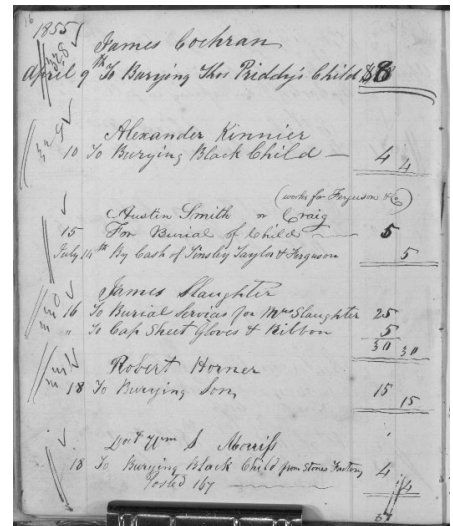 16
1855
James Cochran
April 9th To Burying Thos Priddy's Child $8
Alexander Kinnier
10 To Burying Black Child — 4 4
(works for Ferguson &c)
Austin Smith or Craig
15 For Burial of Child 5
July 14th By Cash of Tinsley Taylor & Ferguson 5
James Slaughter
16 To Burial Services for Mrs Slaughter 25
" To Cap Sheet Gloves & Ribbon 5
30 30
Robert Horner
18 To Burying Son 15
15
Wm S Morris
18 To Burying Black Child from Stones Factory 4
Posted 167 4